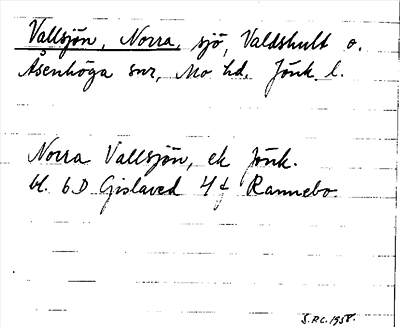 Vallsjön, Norra, sjö, Valdshult o.
Åsenhöga snr, Mo hd. Jönk. l.
Norra Vallsjön, ek Jönk.
bl. 6D Gislaved 4f Rannebo.
S.P.C. 1958.